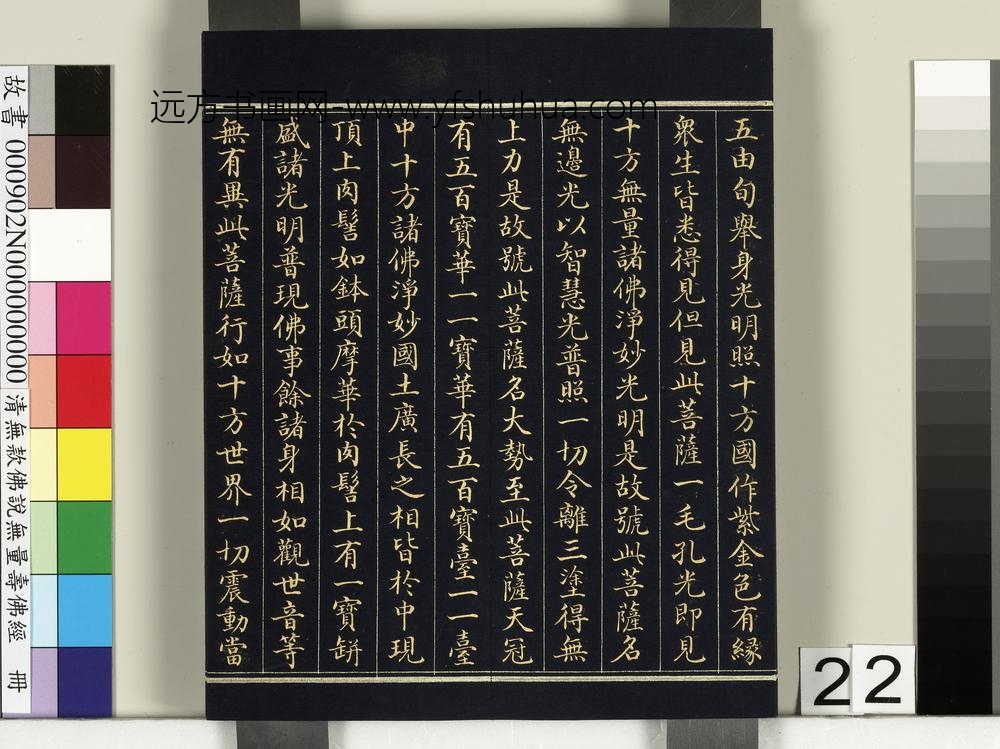 五由旬舉身光明照十方國作紫金色有緣
衆生皆悉得見但見此菩薩一毛孔光即見
十方無量諸佛淨妙光明是故號此菩薩名
無邊光以智慧光普照一切令離三塗得無
上力是故號此菩薩名大勢至此菩薩天冠
有五百寶華一一寶華有五百寶臺一一臺
中十方諸佛淨妙國土廣長之相皆於中現
頂上肉髻如鉢頭摩華於肉髻上有一寶缾
盛諸光明普現佛事餘諸身相如觀世音等
無有異此菩薩行如十方世界一切震動當
远方书画网-www.yfshuhua.com
故書 000902N000000000 清無款佛說無量壽佛經 冊
22